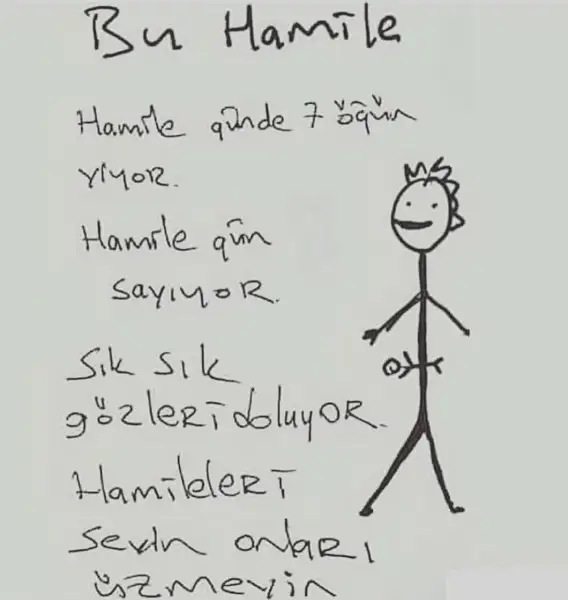 Bu Hamile
Hamile günde 7 öğün
yiyor.
Hamile gün
sayıyor.
Sık sık
gözleri doluyor.
Hamileleri
sevin onları
üzmeyin